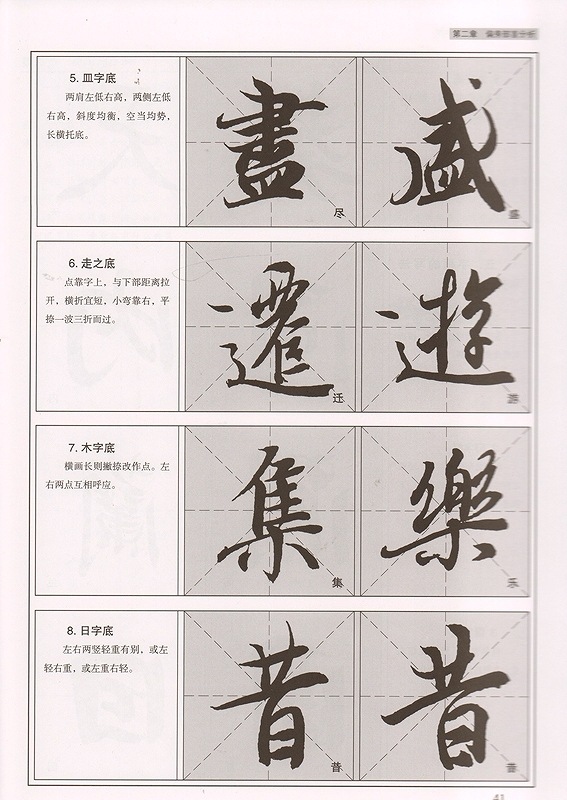 第二章 偏旁部首分析
5. 皿字底
两肩左低右高，两侧左低
右高，斜度均衡，空当均势，
长横托底。
盡
尽
盛
盛
6. 走之底
点靠字上，与下部距离拉
开，横折宜短，小弯靠右，平
捺一波三折而过。
遷
迁
遊
游
7. 木字底
横画长则撇捺改作点。左
右两点互相呼应。
集
集
樂
乐
8. 日字底
左右两竖轻重有别，或左
轻右重，或左重右轻。
昔
昔
昔
41